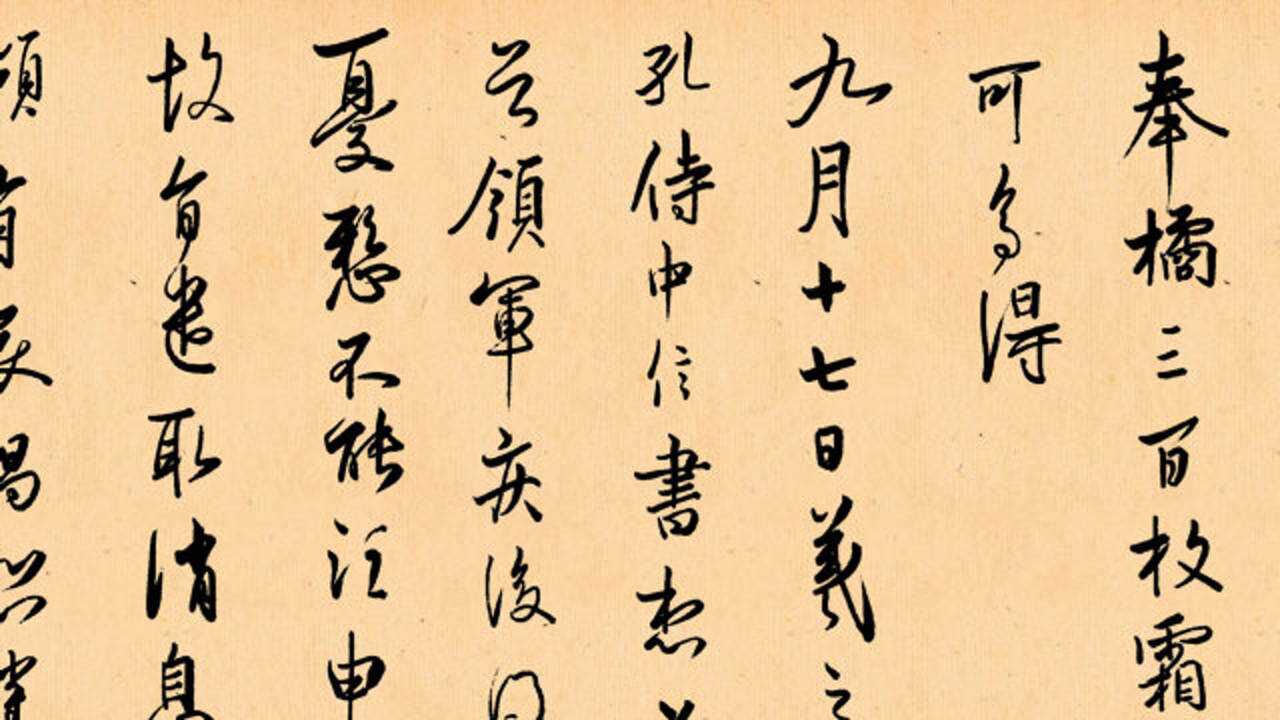 奉橘三百枚霜
可多得
九月十七日羲之
孔侍中信書想
領軍疾後問
憂懸不能須臾
故旨遣取消息